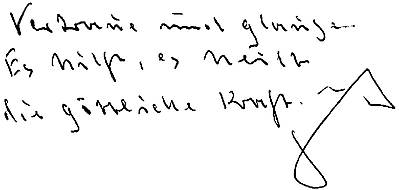 Vertraue und glaube
Es hilft, es heilt
die göttliche Kraft.